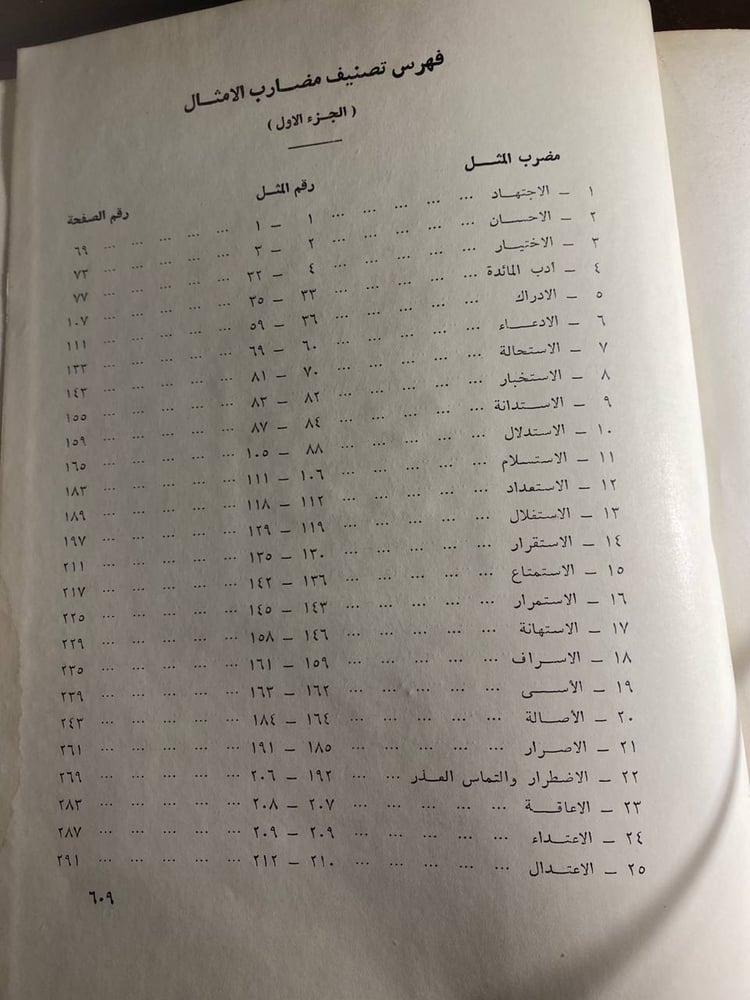 فهرس تصنيف مضــارب الامثــال
( الجـزء الاول )
مضرب المثــل رقم المثــل رقم الصفحة
١ – الاجتهـاد ... ... ... ... ... ١ – ١ ... ... ... ... ٦٩
٢ – الاحســان ... ... ... ... ... ٢ – ٣ ... ... ... ... ٧٣
٣ – الاختيــار ... ... ... ... ... ٤ – ٣٢ ... ... ... ... ٧٧
٤ – أدب المائدة ... ... ... ... ... ٣٣ – ٣٥ ... ... ... ... ١٠٧
٥ – الادراك ... ... ... ... ... ٣٦ – ٥٩ ... ... ... ... ١١١
٦ – الادعــاء ... ... ... ... ... ٦٠ – ٦٩ ... ... ... ... ١٣٣
٧ – الاستحالة ... ... ... ... ... ٧٠ – ٨١ ... ... ... ... ١٤٣
٨ – الاستخبار ... ... ... ... ... ٨٢ – ٨٣ ... ... ... ... ١٥٥
٩ – الاستدانة ... ... ... ... ... ٨٤ – ٨٧ ... ... ... ... ١٥٩
١٠ – الاستدلال ... ... ... ... ... ٨٨ – ١٠٥ ... ... ... ... ١٦٥
١١ – الاستسلام ... ... ... ... ... ١٠٦ – ١١١ ... ... ... ... ١٨٣
١٢ – الاستعداد ... ... ... ... ... ١١٢ – ١١٨ ... ... ... ... ١٨٩
١٣ – الاستغلال ... ... ... ... ... ١١٩ – ١٢٩ ... ... ... ... ١٩٧
١٤ – الاستقرار ... ... ... ... ... ١٣٠ – ١٣٥ ... ... ... ... ٢١١
١٥ – الاستمتاع ... ... ... ... ... ١٣٦ – ١٤٢ ... ... ... ... ٢١٧
١٦ – الاستمرار ... ... ... ... ... ١٤٣ – ١٤٥ ... ... ... ... ٢٢٥
١٧ – الاستهانة ... ... ... ... ... ١٤٦ – ١٥٨ ... ... ... ... ٢٢٩
١٨ – الاســراف ... ... ... ... ... ١٥٩ – ١٦١ ... ... ... ... ٢٣٥
١٩ – الأســى ... ... ... ... ... ١٦٢ – ١٦٣ ... ... ... ... ٢٣٩
٢٠ – الأصــالة ... ... ... ... ... ١٦٤ – ١٨٤ ... ... ... ... ٢٤٣
٢١ – الاصــرار ... ... ... ... ... ١٨٥ – ١٩١ ... ... ... ... ٢٦١
٢٢ – الاضطرار والتماس العـذر ... ... ١٩٢ – ٢٠٦ ... ... ... ... ٢٦٩
٢٣ – الاعاقــة ... ... ... ... ... ٢٠٧ – ٢٠٨ ... ... ... ... ٢٨٣
٢٤ – الاعتــداء ... ... ... ... ... ٢٠٩ – ٢٠٩ ... ... ... ... ٢٨٧
٢٥ – الاعتــدال ... ... ... ... ... ٢١٠ – ٢١٢ ... ... ... ... ٢٩١
٦٠٩